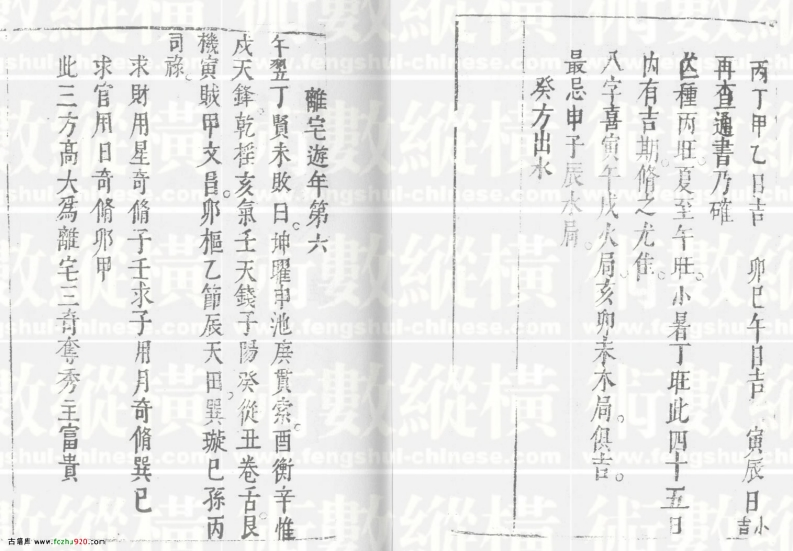 丙丁甲乙日吉　卯巳午日吉　寅辰日小吉
再查通書乃確
芒種丙旺夏至午旺。小暑丁旺此四十五日
内有吉期。脩之尤佳。
八字喜寅午戌火局亥卯未木局。俱吉。
最忌申子辰水局。
癸方出水
離宅遊年第六
午翌丁賢未敗日。坤曜申池庚貫索。酉衡辛惟
戌天鋒乾榣亥氣壬天錢子陽癸從丑卷舌。艮
機寅賊甲文昌。卯樞乙節辰天田。巽璇巳孫丙
司祿。
求財用星奇脩子壬求子用月奇脩巽巳
求官用日奇脩卯甲
此三方高大爲離宅三奇奪秀主富貴
術數縱橫
www.fengshui-chinese.com
古籍库 www.fozhu920.com